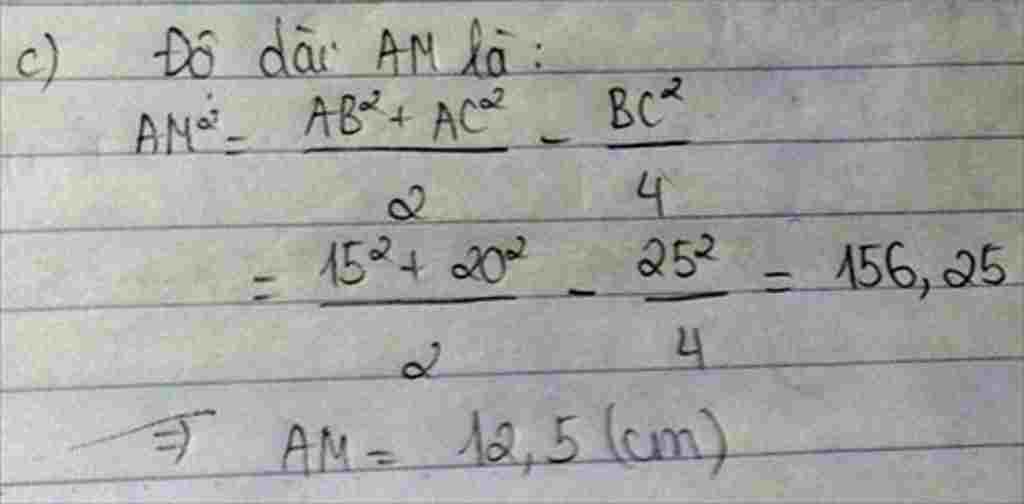 c) Độ dài AM là:
AM² = (AB² + AC²)/2 - BC²/4
= (15² + 20²)/2 - 25²/4 = 156,25
⇒ AM = 12,5 (cm)